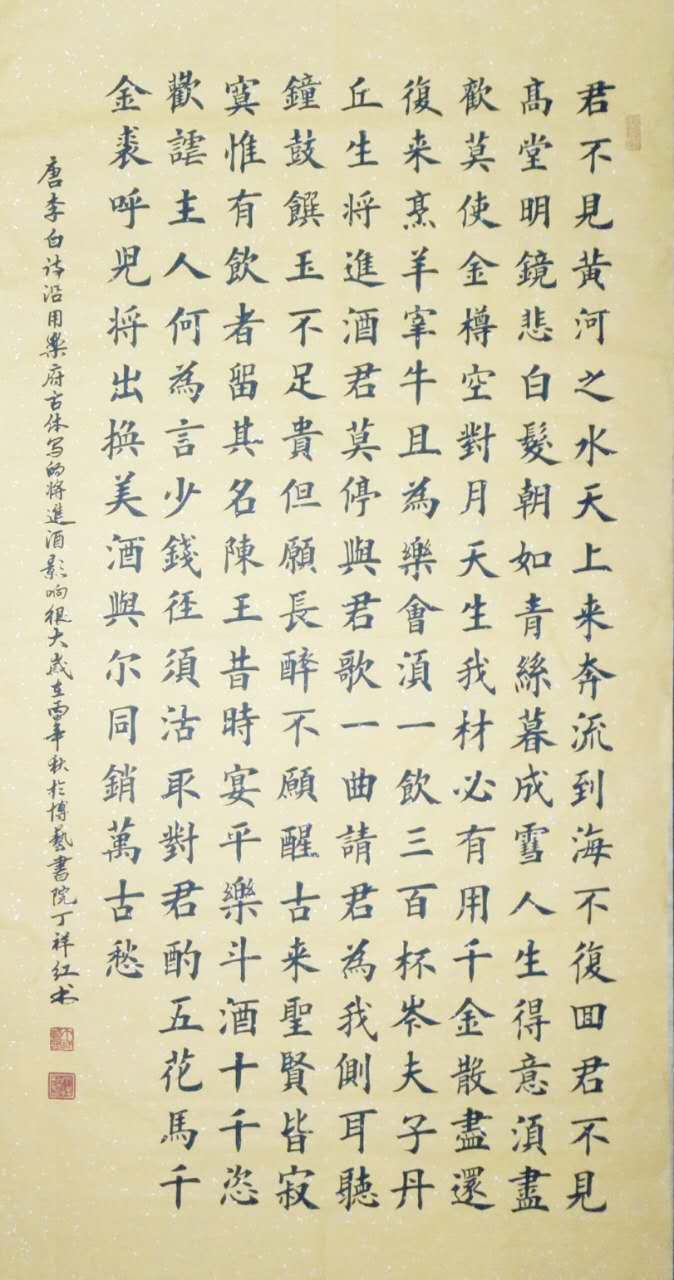 君不見黃河之水天上来奔流到海不復囬君不見
髙堂明鏡悲白髮朝如青絲暮成雪人生得意須盡
歡莫使金樽空對月天生我材必有用千金散盡還
復来烹羊宰牛且為樂會須一飲三百杯岑夫子丹
丘生將進酒君莫停與君歌一曲請君為我側耳聽
鐘鼓饌玉不足貴但願長醉不願醒古来聖賢皆寂
寞惟有飲者留其名陳王昔時宴平樂斗酒十千恣
歡謔主人何為言少錢徑須沽取對君酌五花馬千
金裘呼兒将出換美酒與尔同銷萬古愁
唐李白诗沿用樂府古体写的將進酒影响很大歲在丙申秋於博藝書院丁祥红书